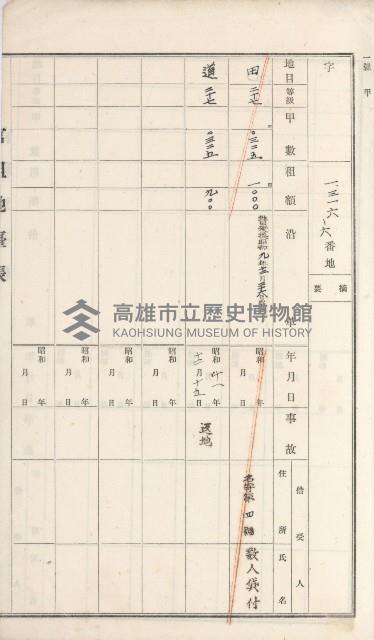 一號甲
字
一、三一六ノ六番地
摘要
地目
等級
甲數
租額
沿革
年月日
事故
借受人
住所氏名
田
二十七
〇三二五
一〇〇〇
昭和 年 月 日
名寄帳
四號
數人貸付
道
二十七
〇三二五
九〇〇
昭和十一年十二月十五日
昭和 年 月 日
昭和 年 月 日
昭和 年 月 日
昭和 年 月 日
官租地臺帳
高雄市立歷史博物館
KAOHSIUNG MUSEUM OF HISTORY